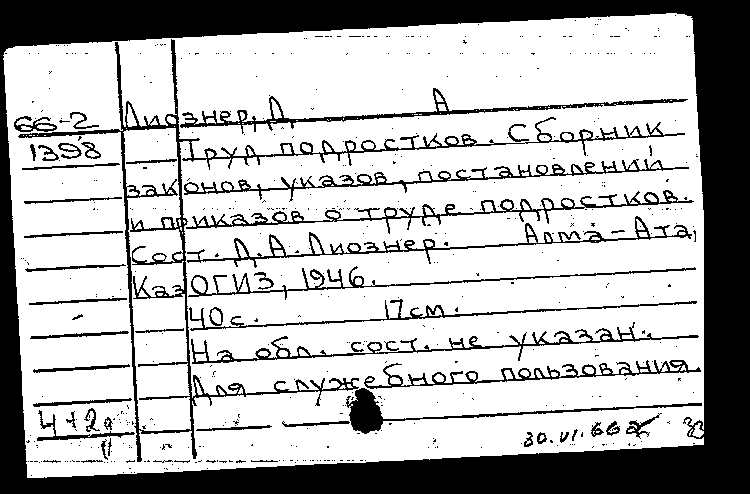 66-2 Лиознер, Д А
1398 Труд подростков. Сборник
законов, указов, постановлений
и приказов о труде подростков.
Сост. Д.А.Лиознер. Алма-Ата,
КазОГИЗ, 1946.
40с. 17см.
На обл. сост. не указан.
Для служебного пользования.
4+2д
30.VI.66